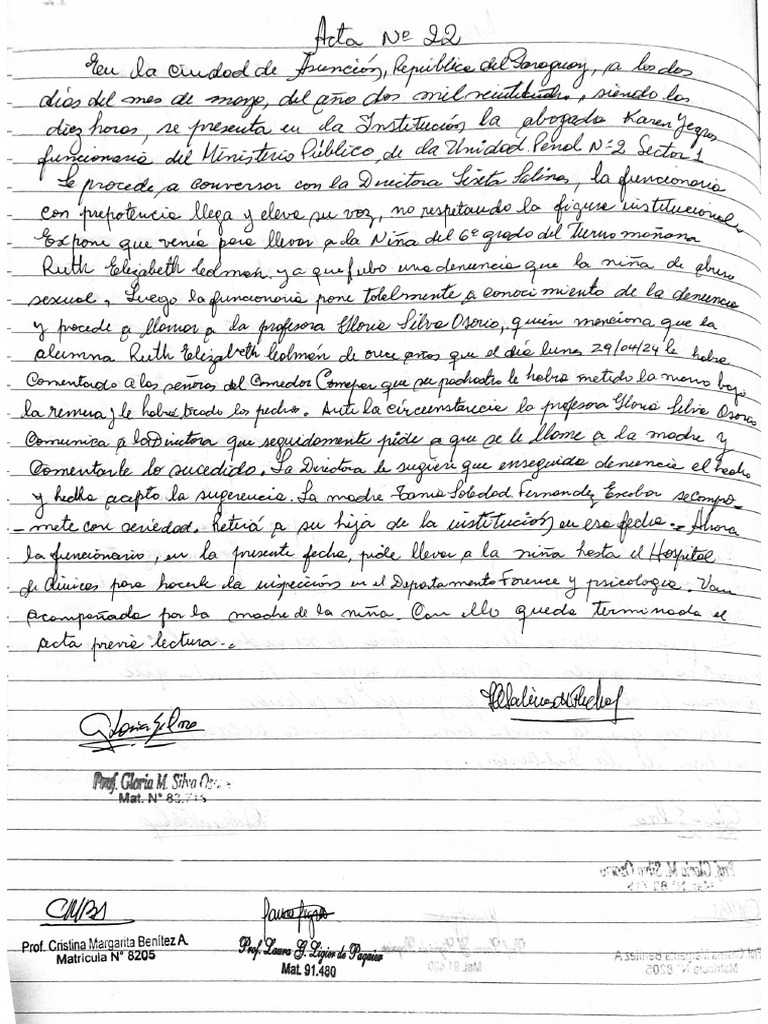 Acta Nº 22
En la ciudad de Asunción, República del Paraguay, a los dos
días del mes de mayo, del año dos mil veinticuatro, siendo las
diez horas, se presenta en la Institución la abogada Karen Yegros
funcionaria del Ministerio Público, de la Unidad Penal Nº 2 Sector 1
Se procede a conversar con la Directora Sixta Salinas, la funcionaria
con prepotencia llega y eleva su voz, no respetando la figura institucional.
Expone que venía para llevar a la Niña del 6º grado del Turno mañana
Ruth Elizabeth Colmán. ya que hubo una denuncia que la niña de abuso
sexual. Luego la funcionaria pone totalmente a conocimiento de la denuncia
y procede a llamar a la profesora Gloria Silva Osorio, quien menciona que la
alumna Ruth Elizabeth Colmán de once años que el día lunes 29/04/24 le había
Comentado a las señoras del Comedor que su padrastro le había metido la mano bajo
la remera y le había tocado los pechos. Ante la circunstancia la profesora Gloria Silva Osorio
Comunica a la Directora que seguidamente pide a que se le llame a la madre y
Comentarle lo sucedido. La Directora le sugiere que enseguida denuncie el hecho
y acepto la sugerencia. La madre Tania Soledad Fernandez Escobar se compro-
mete con seriedad. Retirá a su hija de la institución en esa fecha.- Ahora
la funcionaria, en la presente fecha, pide llevar a la niña hasta el Hospital
de Clínicas para hacerle la inspección en el Departamento Forence y psicologia. Van
acompañada por la madre de la niña. Con ello queda terminada el
acta previa lectura.-
Gloria Silva
Prof. Gloria M. Silva
Mat. N° 83.715
Prof. Cristina Margarita Benítez A.
Matrícula N° 8205
Prof. Laura G. Ligier de Paquier
Mat. 91.480